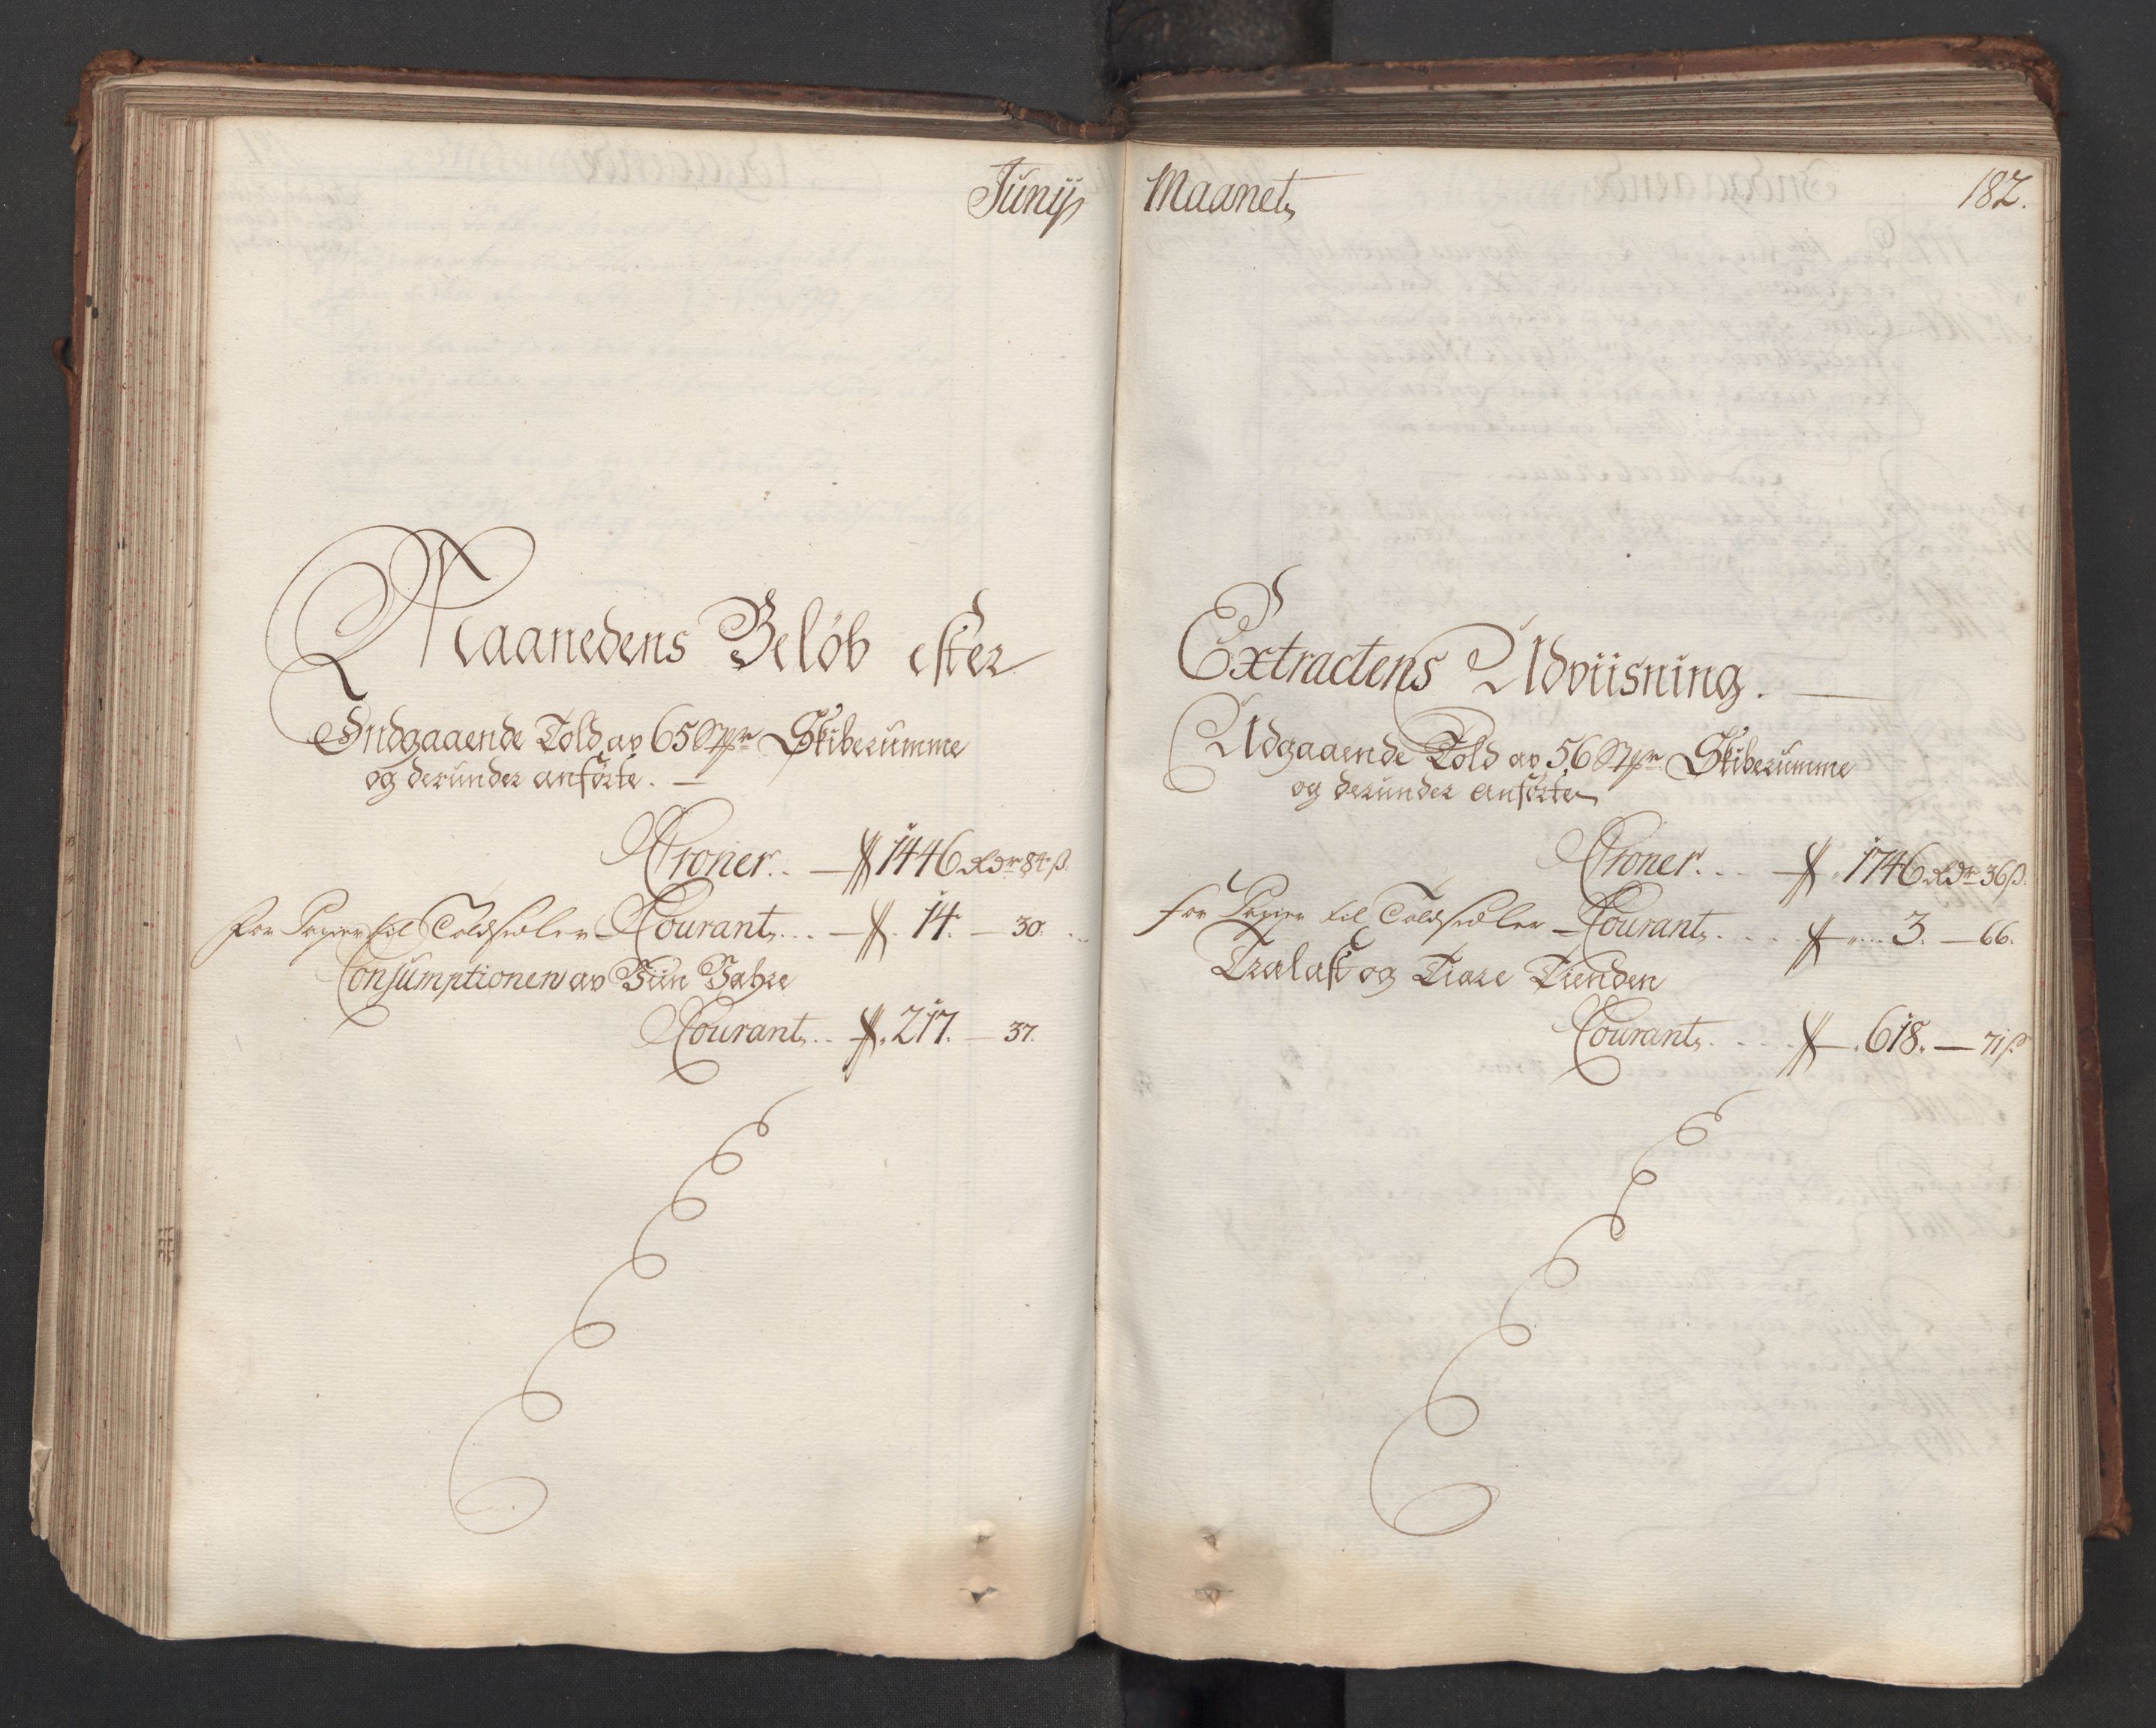 Junij
Maanedens Beløb efter
Indgaaende Told av 65 Stkr Skiberumme
og derunder anførte. —
Croner. . — 1446 Rdr 84 ß.
For Papier til Toldsedler Courant. . . — 14. — 30.
Consumptionen av Viin Vahre
Courant. . 217. — 37.
Maanet
182.
Extractens Udviisning. —
Udgaaende Told av 56 Stkr Skiberumme
og derunder anførte
Croner. . . — 1746 Rdr 36 ß.
for Papier til Toldsedler — Courant. . . . 3. — 66.
Trælast og Tiære Tienden
Courant. . . . 618. — 71 ß